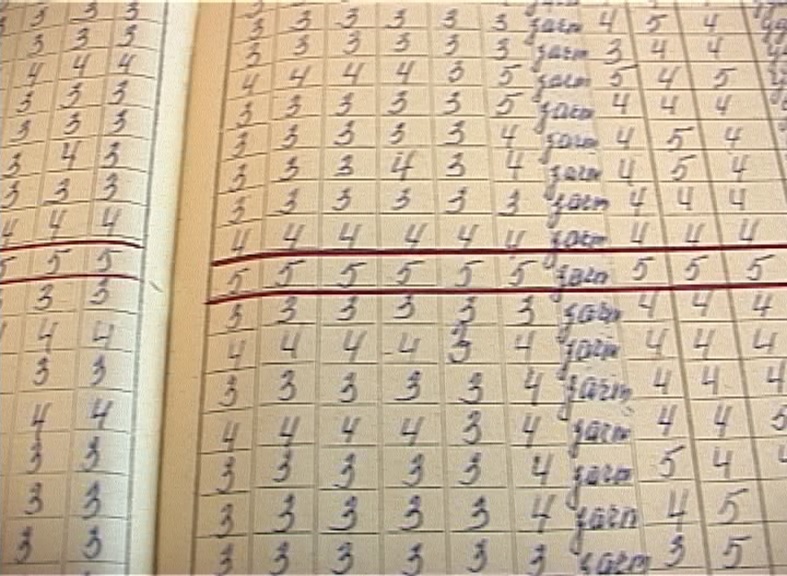 3 3 3
3 3 3
4 4 4
3 3 3
3 3 3
3 4 3
3 3 3
4 4 4
5 5 5
3 3
4 4
3 3
4 4
3 3
3 3
3 3
3 3 3 3 3 3 зачт 4 5 4
3 3 3 3 3 3 зачт 3 4 4
4 4 4 4 3 5 зачт 5 4 5
3 3 3 3 3 5 зачт 4 4 4
3 3 3 3 3 4 зачт 4 5 4
3 3 3 4 3 4 зачт 4 5 4
3 3 3 3 3 3 зачт 4 4 4
4 4 4 4 4 4 зачт 4 4 4
5 5 5 5 5 5 зачт 5 5 5
3 3 3 3 3 3 зачт 4 4 4
4 4 4 4 3 4 зачт 4 4 4
3 3 3 3 3 4 зачт 4 4 4
4 4 4 4 3 4 зачт 4 4 5
3 3 3 3 3 4 зачт 5 4
3 3 3 3 3 4 зачт 4 5
3 3 3 3 3 3 зачт 3 5